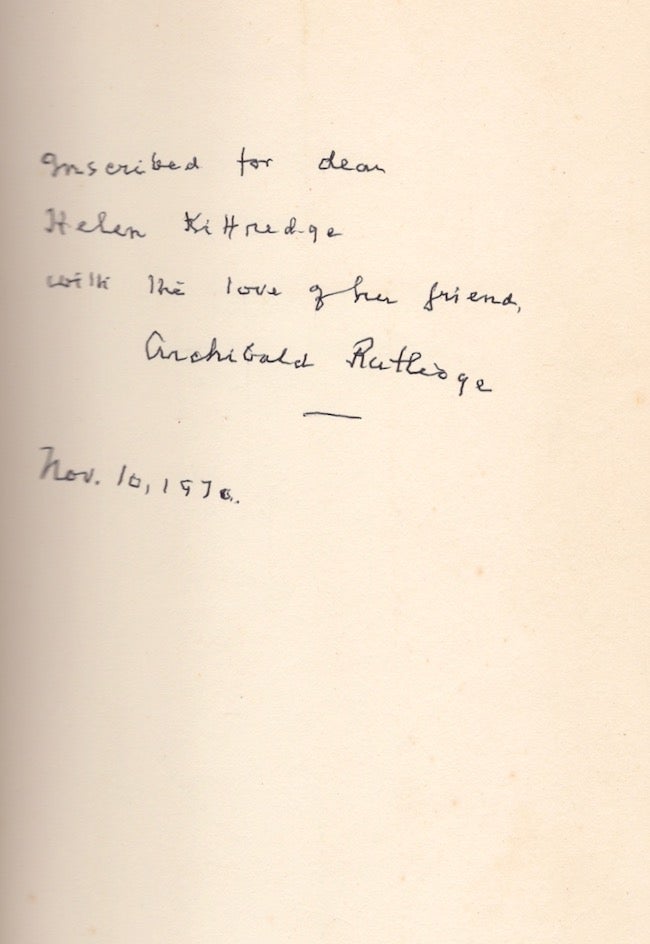 Inscribed for dear
Helen Kittredge
with the love of her friend,
Archibald Rutledge
Nov. 10, 1970.